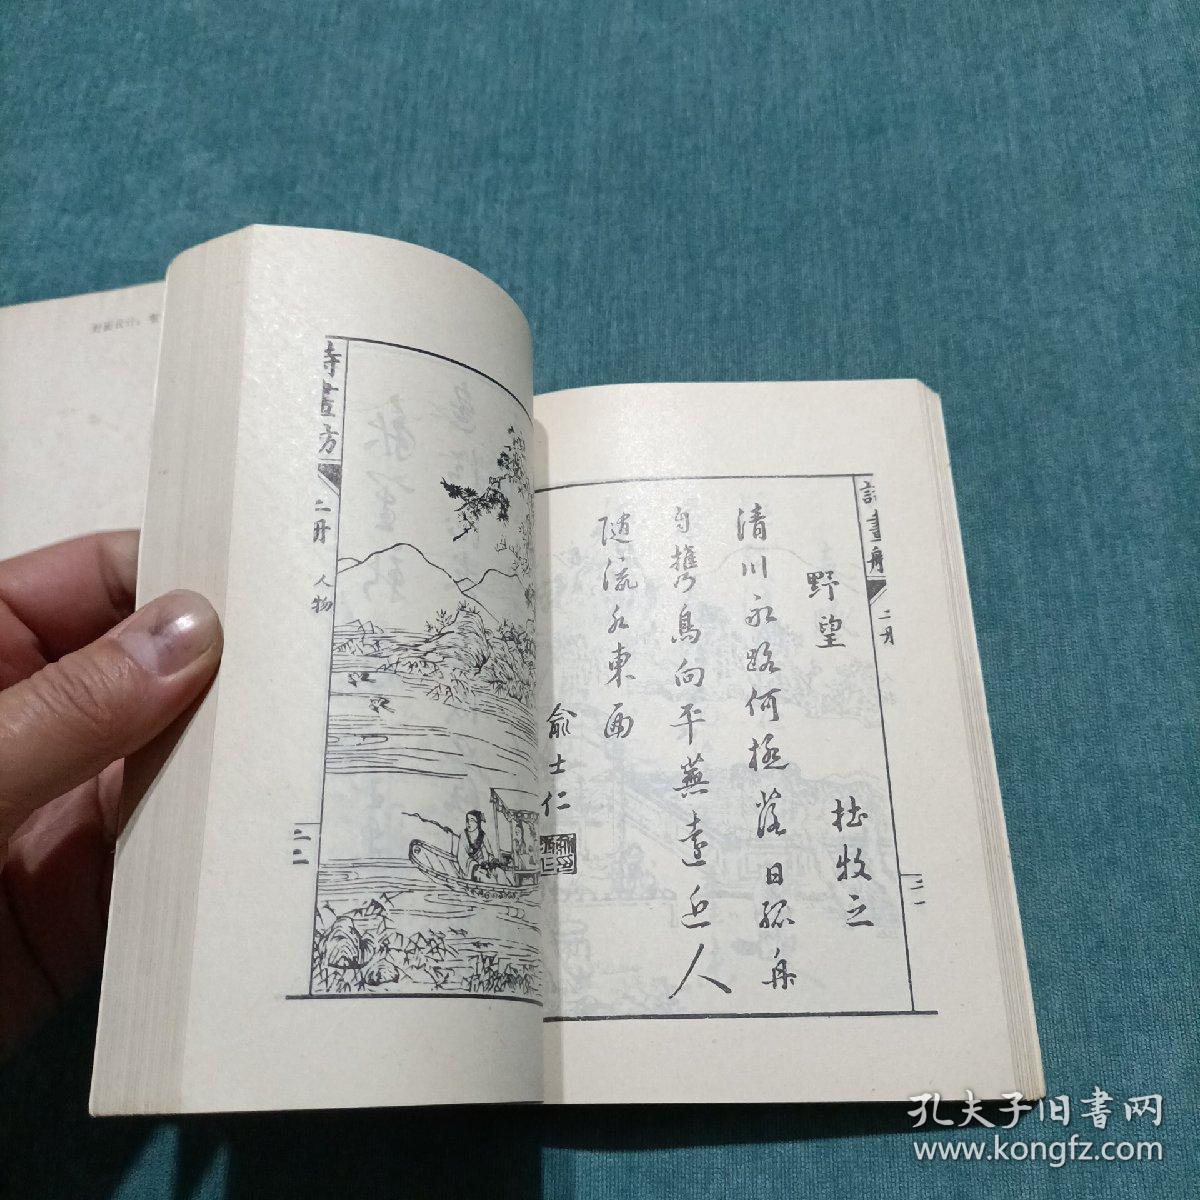 詩畫舟
二月
野望
杜牧之
清川永路何極落日孤舟
自攜鳥向平蕪遠近人
隨流水東西
俞士仁
二一
詩畫方
二册
人物
二二
封面设计：
孔夫子旧书网
www.kongfz.com